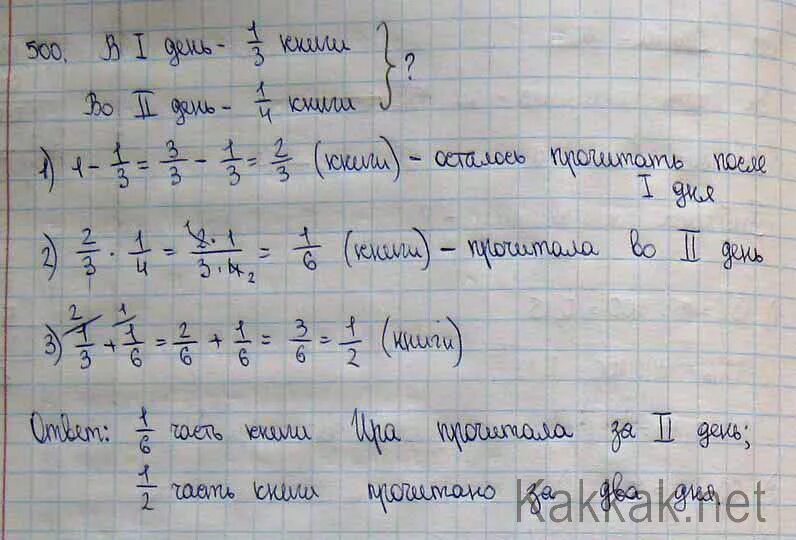 500. В I день - 1/3 книги } ?
Во II день - 1/4 книги
1) 1 - 1/3 = 3/3 - 1/3 = 2/3 (книги) - осталось прочитать после
I дня
2) 2/3 · 1/4 = 2·1/3·4 = 1/6 (книги) - прочитала во II день
3) 1/3 + 1/6 = 2/6 + 1/6 = 3/6 = 1/2 (книги)
Ответ: 1/6 часть книги Ира прочитала за II день;
1/2 часть книги прочитано за два дня.
Kakkak.net